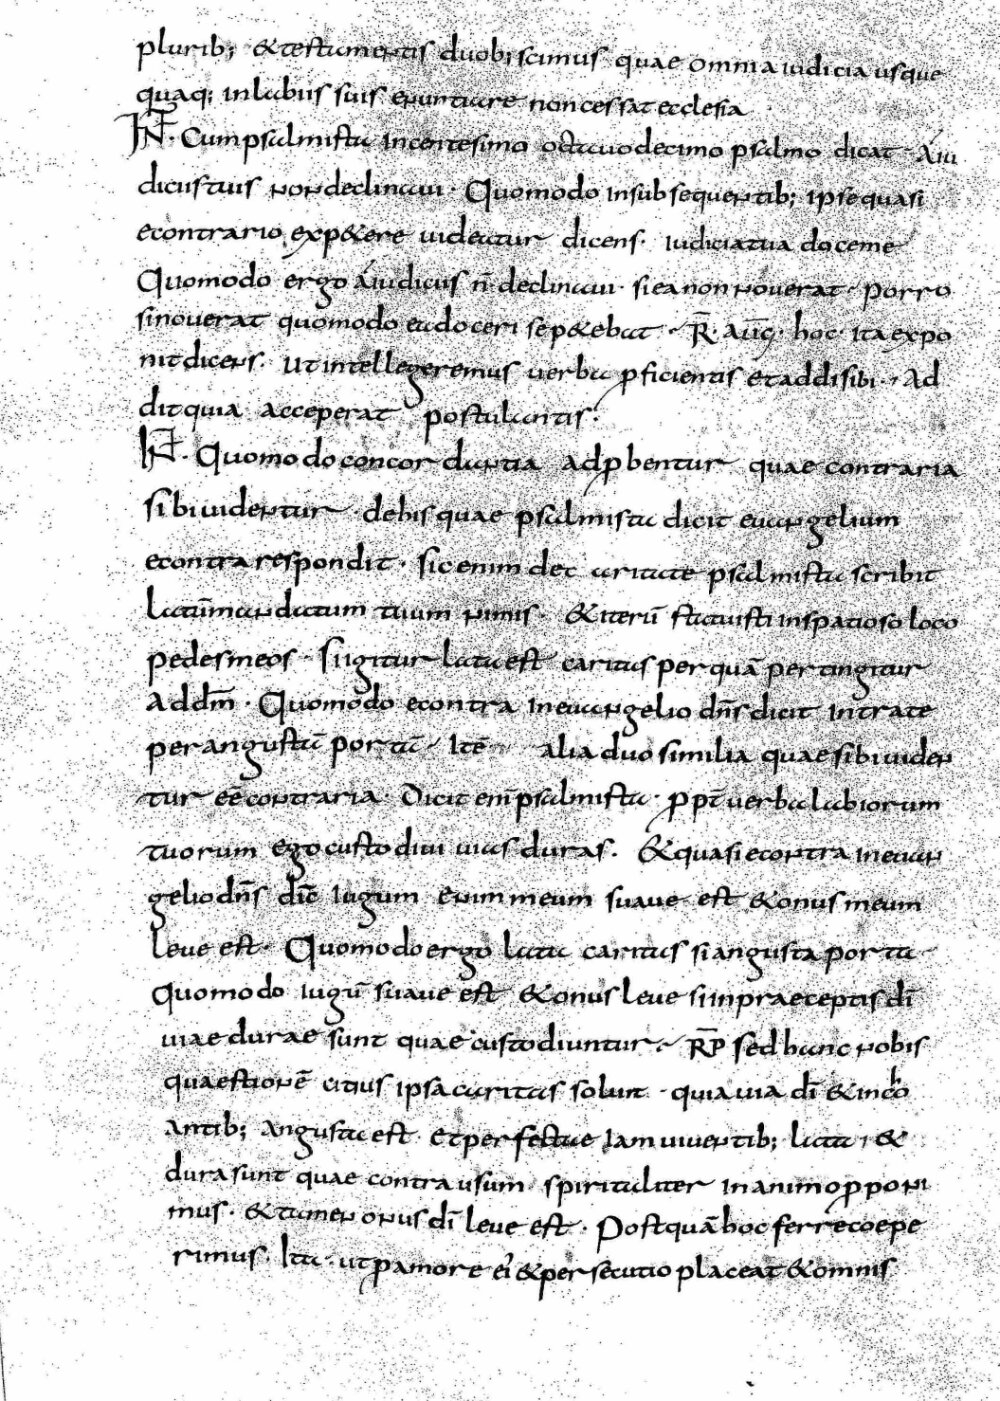 plurib; & testamentis duob; scimus quae omnia iudicia usque
quaq; in labiis suis enuntiare non cessat ecclesia
INT. Cum psalmista in centesimo octavo decimo psalmo dicat. A iu
diciis tuis non declinavi. Quomodo in subsequentib; ipse quasi
econtrario exp&ere videatur dicens. iudicia tua doce me
Quomodo ergo a iudiciis n̄ declinavi. si ea non noverat. Porro
si noverat quomodo ea doceri se p&ebat. R̄. auḡ. hoc. ita expo
nit dicens. Ut intellegeremus verba ꝓficientis et addi sibi. Ad
dit quia acceperat postulantis.
INT. Quomodo concordantia adꝓbentur quae contraria
sibi videntur. de his quae psalmista dicit evangelium
econtra respondit. Sic enim de caritate psalmista scribit
Latū mandatum tuum nimis. & iterū statuisti in spatioso loco
pedes meos. Si igitur lata est caritas per quā pertingitur
ad dm̄. Quomodo econtra in evangelio dn̄s dicit intrate
per angustā portā. Itē alia duo similia quae sibi viden
tur eē contraria. Dicit eni psalmista. ꝓpt̄ verba labiorum
tuorum ego custodivi vias duras. & quasi econtra in evan
gelio dn̄s dic̄ iugum enim meum suave est & onus meum
leve est. Quomodo ergo lata caritas si angusta porta
Quomodo iugū suave est & onus leve si in praeceptis dī
viae durae sunt quae custodiuntur. R̄P sed hanc nobis
quaestionē citius ipsa caritas solvit. quia via dī & incho
antib; angusta est et perfectae iam viventib; lata, &
dura sunt quae contra usum spiritaliter in animo ꝓponi
mus. & tamen onus dī leve est. Postquā hoc ferre coepe
rimus. Ita. ut ꝑ amore ei & persecutio placeat & omnis